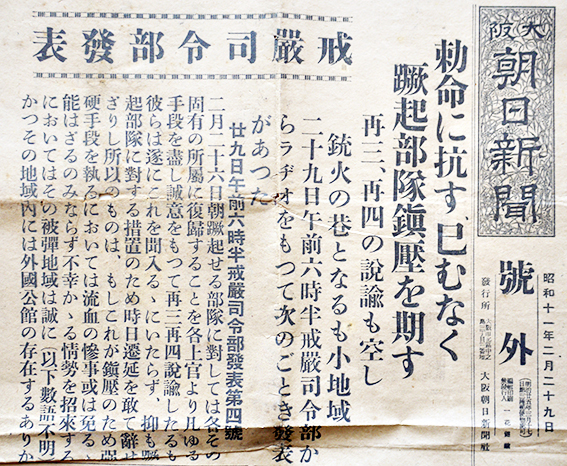 大阪
朝日新聞
號外
昭和十一年二月二十九日
發行所
大阪朝日新聞社
勅命に抗す、已むなく
蹶起部隊鎭壓を期す
再三、再四の說諭も空し
銃火の巷となるも小地域
二十九日午前六時半戒嚴司令部か
らラヂオをもつて次のごとき發表
があつた
戒嚴司令部發表
廿九日午前六時半戒嚴司令部發表第四號
二月二十六日朝蹶起せる部隊に對しては各その
固有の所屬に復歸することを各上官より凡ゆる
手段を盡し誠意をもつて再三再四說諭したるも
彼らは遂にこれを聞入るゝにいたらず、抑も蹶
起部隊に對する措置のため時日遷延を敢て辭せ
ざりし所以のものは、もしこれが鎭壓のため强
硬手段を執るにおいては流血の慘事或は免るゝ
能はざるのみならず不幸かゝる情勢を招來する
においてはその被彈地域は誠に（以下數語不明
かつその地域內には外國公館の存在するありか